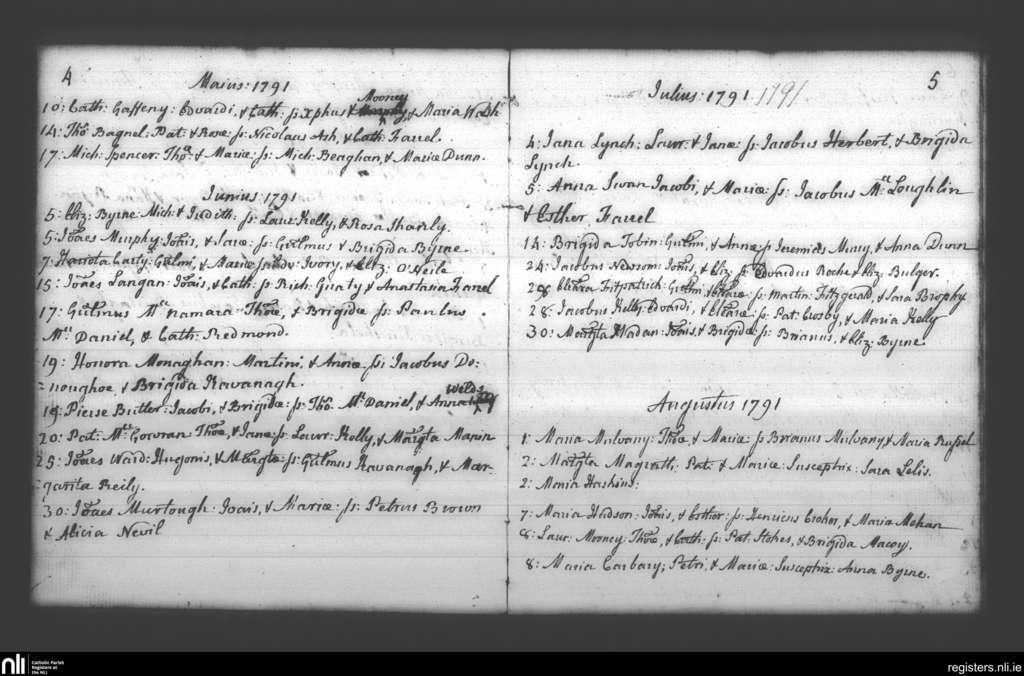 4
Maius: 1791
10: Cath: Gaffeny: Edvardi, & Cath: ss: Xphus Mooney & Maria Walsh
14: Thõ Bagnel: Pat: & Rosæ: ss: Nicolaus Ash, & Cath: Farrel.
17: Mich: Spencer: Thoæ & Mariæ: ss: Mich: Beaghan, & Maria Dunn.
Junius: 1791
5: Eliz: Byrne: Mich: & Judith: ss: Laur: Kelly, & Rosa Shanly.
5: Joães Murphy: Johis, & Saræ: ss: Gulmus & Brigida Byrne
7: Hariota Carty: Gulmi, & Mariæ: ss: Edv: Ivory, & Eliz: O'Neile
15: Joães Langan: Joais, & Cath: ss: Rich: & Anastasia Farrel
17: Gulmus Mc namara: Thoæ, & Brigidæ ss: Paulus
Mc Daniel, & Cath: Redmond.
19: Honora Monaghan: Martini, & Annæ: ss: Jacobus Do:
=noughoe, & Brigida Kavanagh.
19: Pierse Butler: Jacobi, & Brigidæ: ss: Thõ Mc Daniel, & Anna Welds
20: Pat: Mc Gowran Thoæ, & Janæ: ss: Laur: Kelly, & Margta Maron
25: Joães Ward: Hugonis, & Margtæ: ss: Gulmus Kavanagh, & Mar-
garita Reily.
30: Joães Murtough: Joais, & Mariæ: ss: Petrus Brown
& Alicia Nevil
5
Julius: 1791 1791
4: Jana Lynch: Laur: & Janæ: ss: Jacobus Herbert, & Brigida
Lynch.
5: Anna Swan Jacobi, & Mariæ: ss: Jacobus Mc Loughlin
& Esther Farrel
14: Brigida Tobin: Gulmi, & Annæ: ss Jeremias Muny, & Anna Dunn
24: Jacobus Newsom: Johis, & Eliz: ss: Edvardus Roche & Eliz: Bulger.
28 Fitzpatrick: Gulmi & ss: Martin: Fitzgerald, & Sara Brophy
28: Jacobus Kelly: Edvardi, & ss: Pat: Cosby, & Maria Kelly
30: Margta Hadan: Johis, & Brigidæ: ss: Brianus, & Eliz: Byrne
Augustus 1791
1: Maria Mulvany: Thoæ & Mariæ: ss Brianus Mulvany & Maria Russel
2: Margta Magrath: Pat: & Mariæ: Susceptrix: Sara Lelis.
2: Maria Haskins:
7: Maria Hudson: Johis, & Esther: ss: Henricus & Maria Mehan
8: Laur: Mooney: Thoæ, & Cath: ss: Pat: Stokes, & Brigida Macoy.
8: Maria Carbary; Petri, & Mariæ: Susceptrix: Anna Byrne.
nli
Catholic Parish
Registers at
the NLI
registers.nli.ie